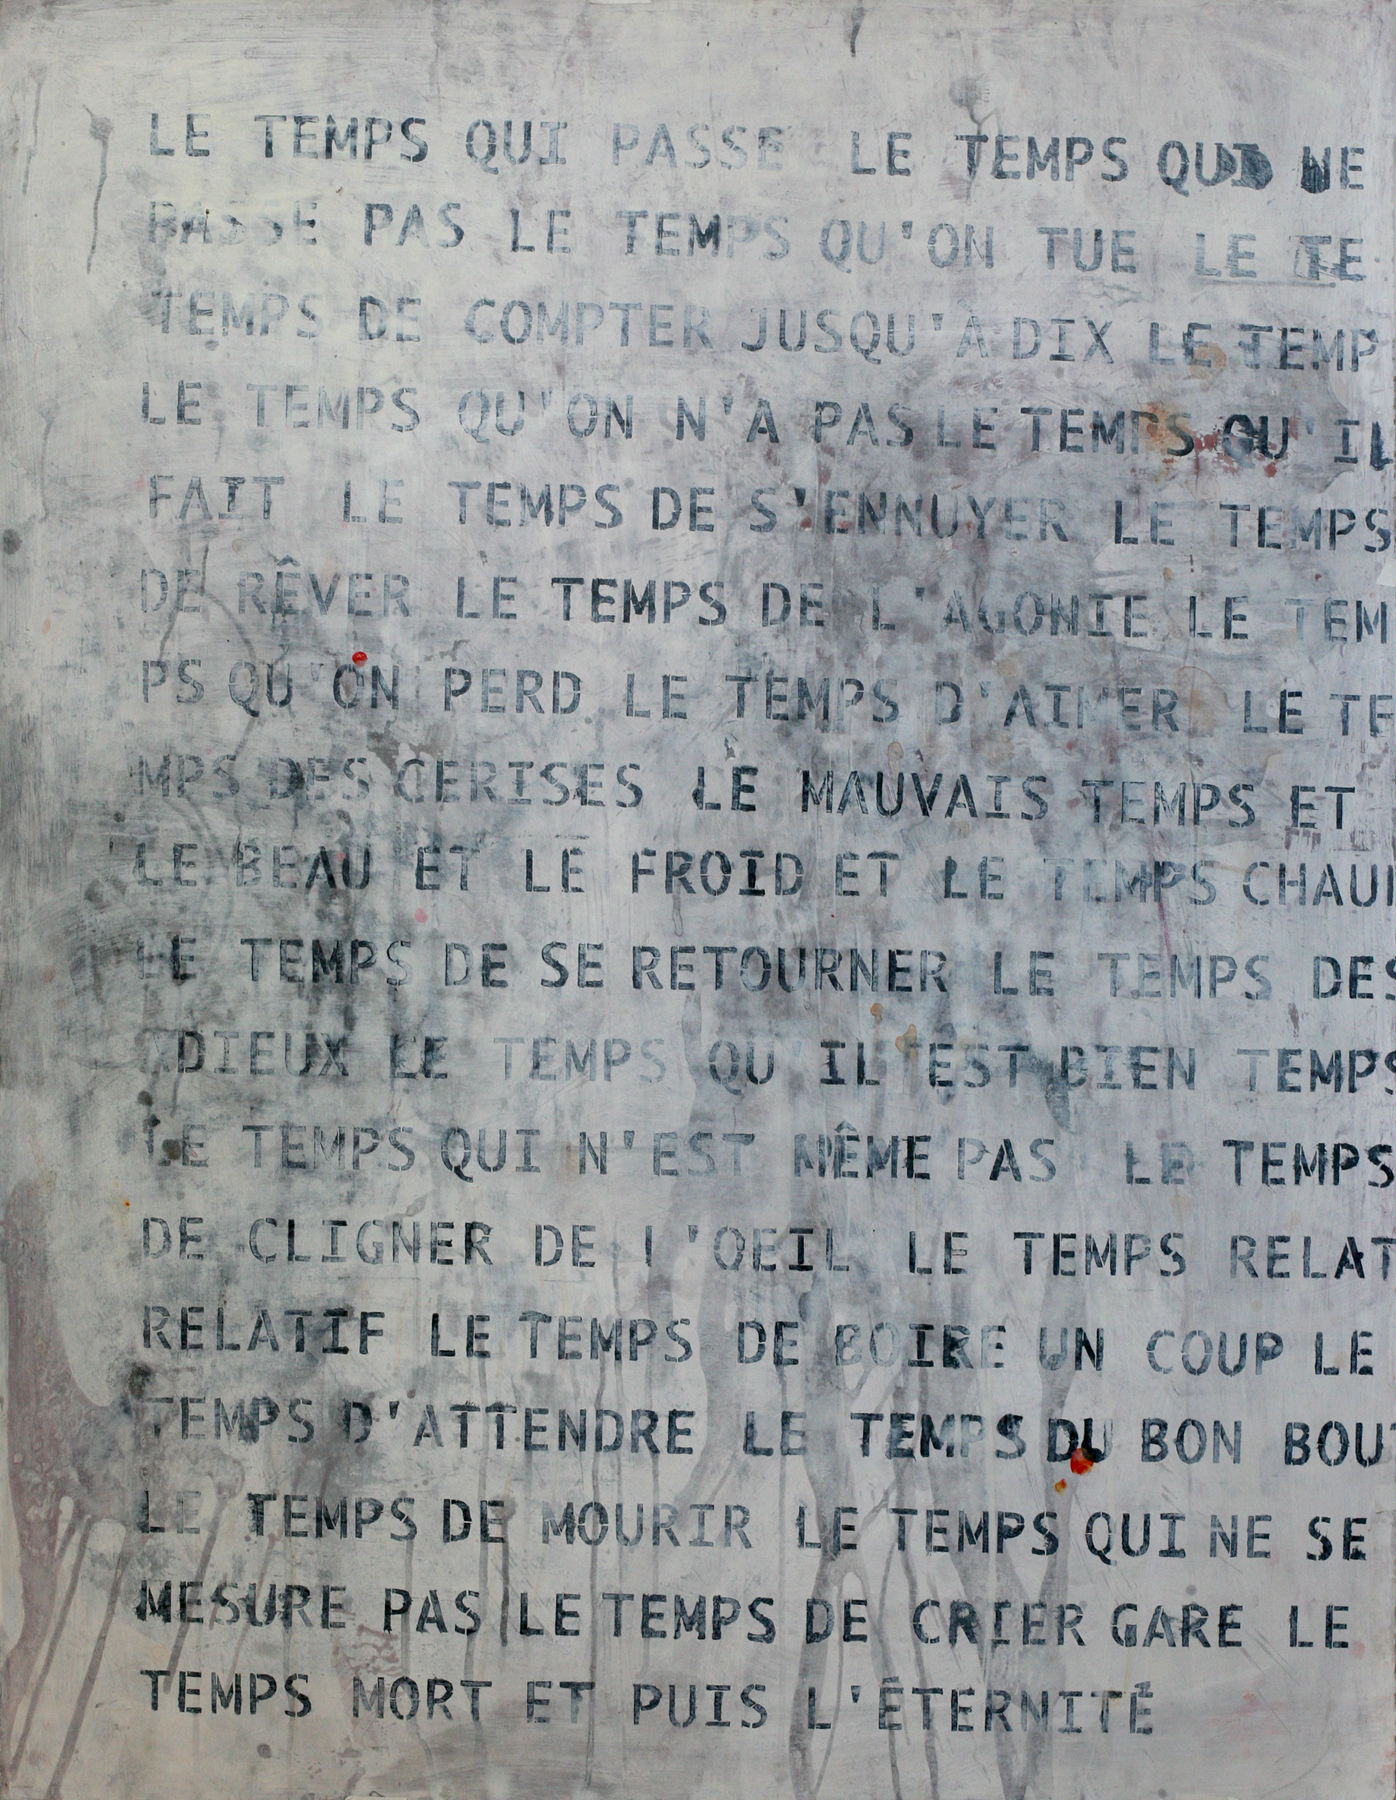 LE TEMPS QUI PASSE LE TEMPS QUI NE
PASSE PAS LE TEMPS QU'ON TUE LE TE
TEMPS DE COMPTER JUSQU'À DIX LE TEMP
LE TEMPS QU'ON N'A PAS LE TEMPS QU'IL
FAIT LE TEMPS DE S'ENNUYER LE TEMPS
DE RÊVER LE TEMPS DE L'AGONIE LE TEM
PS QU'ON PERD LE TEMPS D'AIMER LE TE
MPS DES CERISES LE MAUVAIS TEMPS ET
LE BEAU ET LE FROID ET LE TEMPS CHAUD
LE TEMPS DE SE RETOURNER LE TEMPS DES
ADIEUX LE TEMPS QU'IL EST BIEN TEMPS
LE TEMPS QUI N'EST MÊME PAS LE TEMPS
DE CLIGNER DE L'OEIL LE TEMPS RELAT
RELATIF LE TEMPS DE BOIRE UN COUP LE
TEMPS D'ATTENDRE LE TEMPS DU BON BOUT
LE TEMPS DE MOURIR LE TEMPS QUI NE SE
MESURE PAS LE TEMPS DE CRIER GARE LE
TEMPS MORT ET PUIS L'ÉTERNITÉ